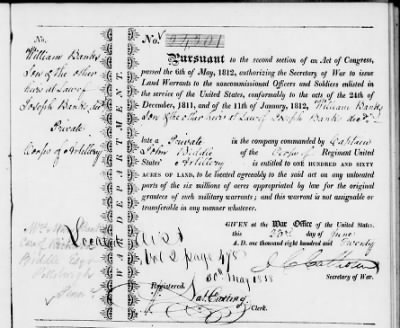 No.
William Banks
Son & the other
heirs at Law of
Joseph Banks dec
Private
Corps of Artillery
WAR DEPARTMENT.
No.
Pursuant to the second section of an Act of Congress,
passed the 6th of May, 1812, authorizing the Secretary of War to issue
Land Warrants to the noncommissioned Officers and Soldiers enlisted
in the service of the United States, conformably to the acts of the 24th
of December, 1811, and of the 11th of January, 1812, William Banks
Son & the other heirs at Law of Joseph Banks dec
late a Private in the company commanded by Captain
John Biddle of the Corps of Regiment United
States' Artillery is entitled to ONE HUNDRED AND SIXTY
ACRES OF LAND, to be located agreeably to the said act on any unlocated
parts of the six millions of acres appropriated by law for the original
grantees of such military warrants; and this warrant is not assignable
or transferable in any manner whatever.
GIVEN at the War Office of the United States,
this 23rd day of June
A. D. one thousand eight hundred and Twenty
J. C. Calhoun
Secretary of War.
Biddle Esq
Pittsburgh
Vol 2 page 478
30th May 1818
Registered,
Clerk.